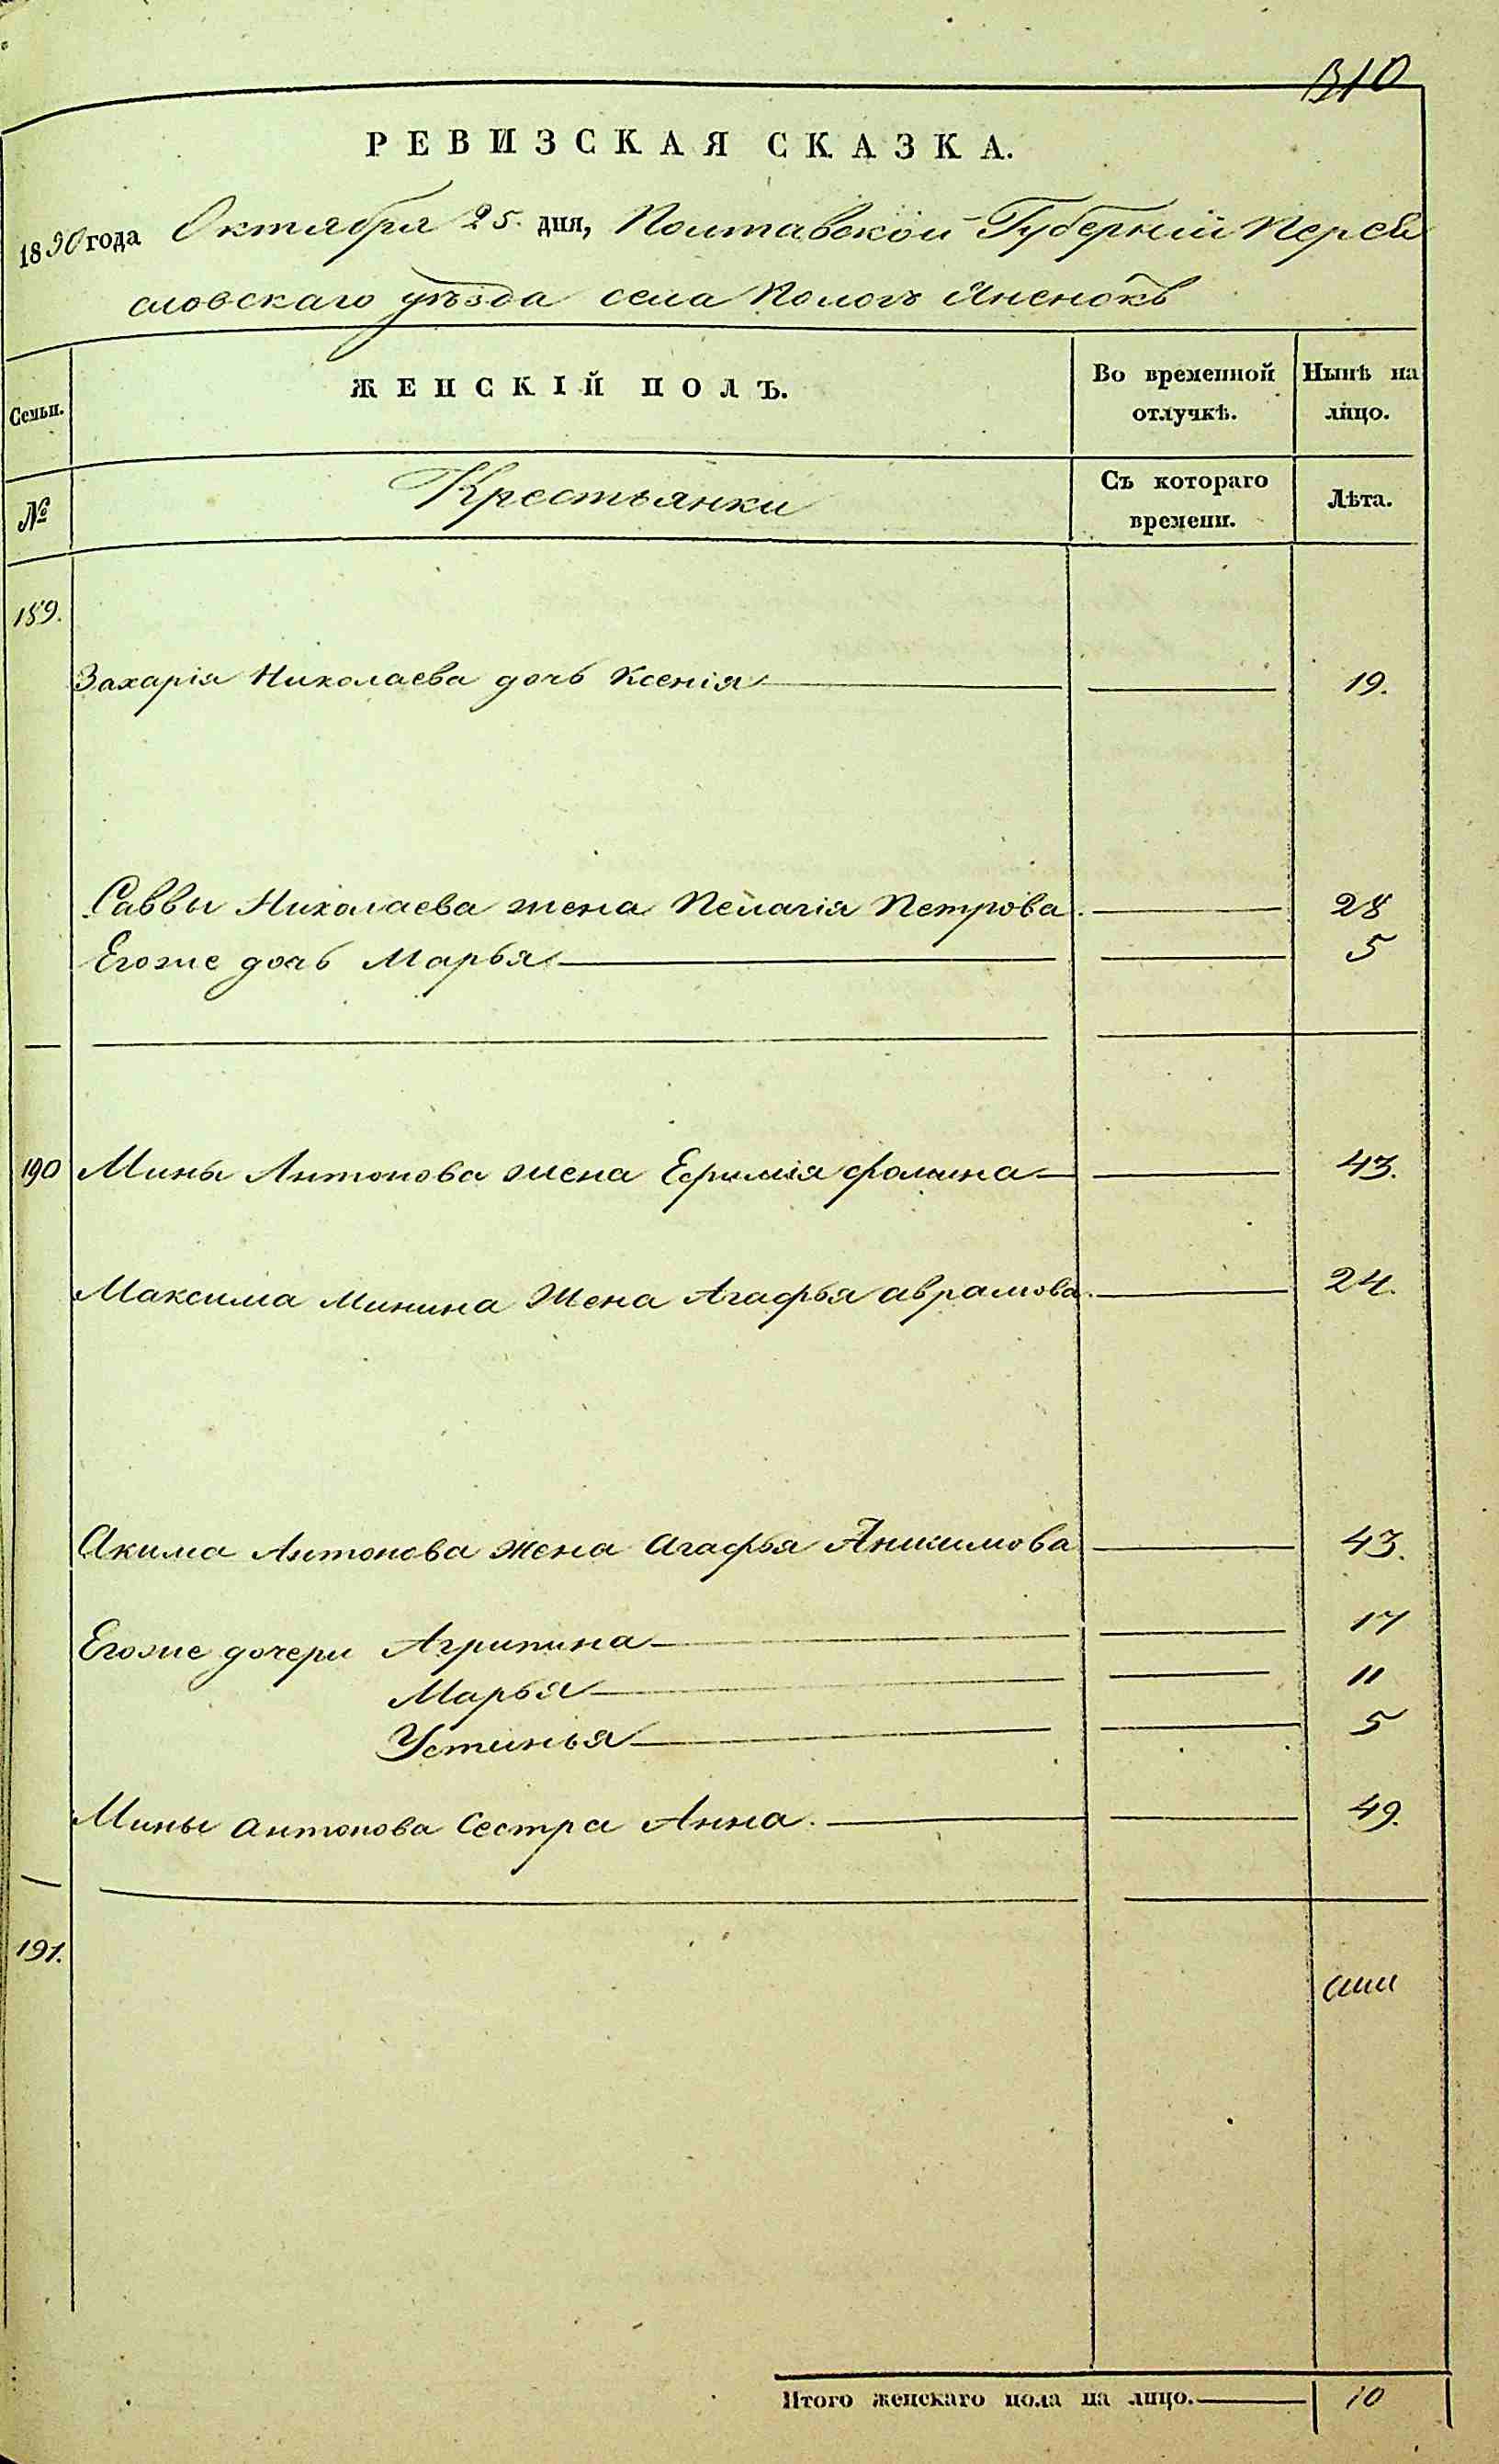 310
РЕВИЗСКАЯ СКАЗКА.
1850 года Октября 25. дня, Полтавской Губерніи Перея
словскаго уѣзда села Пологъ Яненокъ
Семьи.
ЖЕНСКІЙ ПОЛЪ.
Во временной отлучкѣ.
Нынѣ на лицо.
№
Крестьянки
Съ котораго времени.
Лѣта.
189.
Захарія Николаева дочь Ксенія 19.
Саввы Николаева жена Пелагія Петрова. 28
Егоже дочь Марья 5
190 Мины Антонова жена Ефимія Фомина 43.
Максима Минина жена Агафья Аврамова. 24.
Акима Антонова жена Агафья Анисимова 43.
Егоже дочери Агрипина 17
Марья 11
Устинья 5
Мины Антонова Сестра Анна. 49.
191.
Итого женскаго пола на лицо. 10